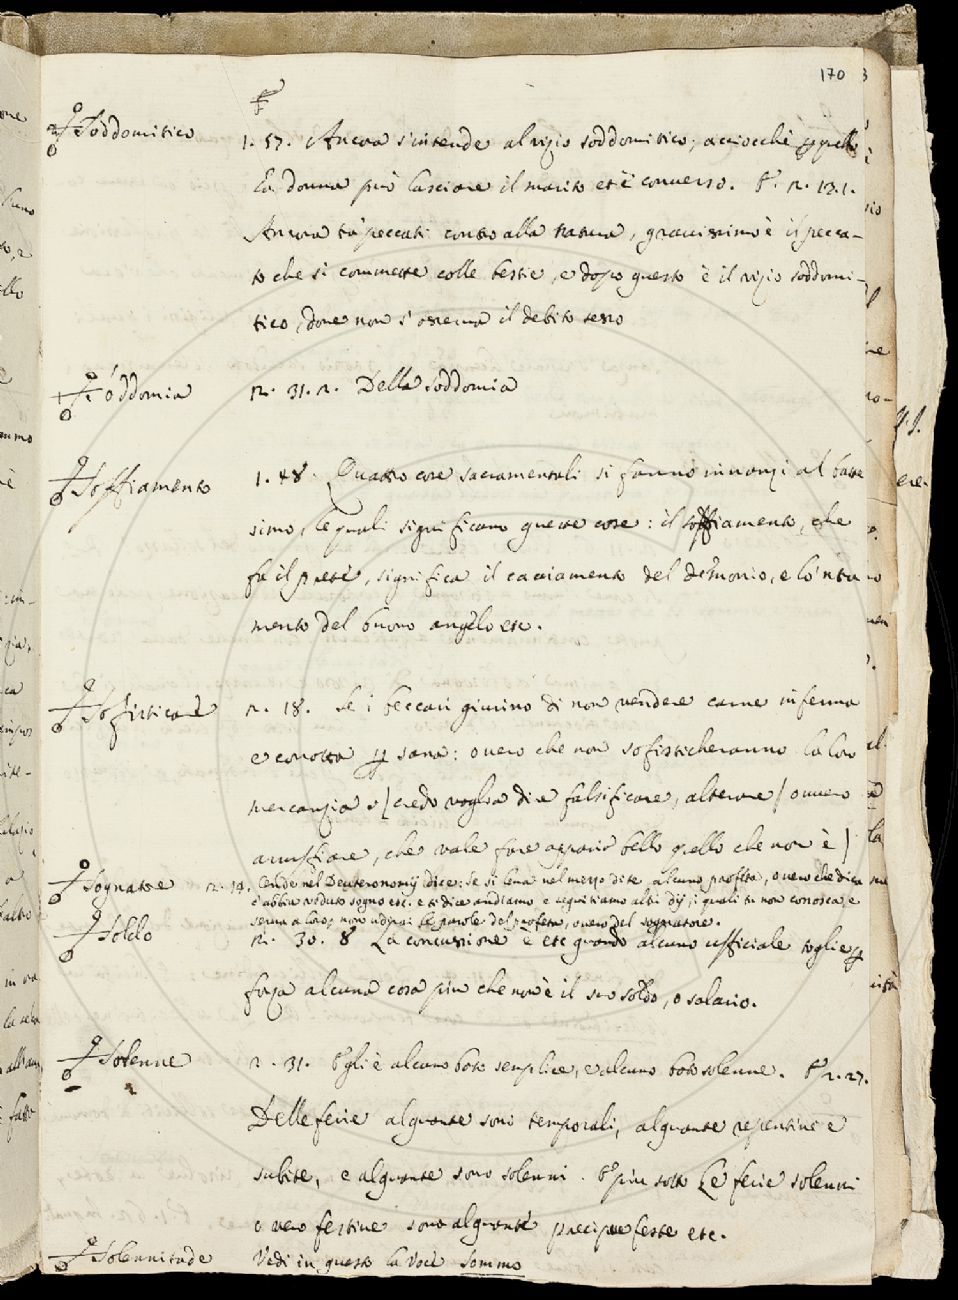 170
Soddomitico 1. 57. Ancora s'intende al vizio soddomitico; acciocchè per quello
La donna può lasciare il marito et è converso. E. 2. 13. 1.
Ancora tra' peccati contro alla natura, gravissimo è il pecca-
to che si commette colle bestie, e dopo questo è il vizio soddomi-
tico, dove non s'osserva il debito sesso
Soddomia 2. 31. 2. Della soddomia
Soffiamento 1. 48. Quattro cose sacramentali si fanno innanzi al batte
simo, le quali significano queste cose: il soffiamento, che
fa il prete, significa il cacciamento del demonio, e lo 'ntra
mento del buono angelo etc.
Sofisticare 2. 18. Se i beccari giurino di non vendere carne inferma
e corrotta per sana: overo che non sofisticheranno la loro
mercanzia (credo voglia dire falsificare, alterare) ovvero
arruffiare, che vale fare apparir bello quello che non è)
Sognatore 2. 14. Onde nel Deuteronomij dice: Se si leva nel mezzo di te alcuno profeta, overo che dica
ch'abbia veduto sogno etc. e ti dice andiamo e seguitiamo altri dij, i quali tu non conosca, e
serva a loro; non udirai le parole del profeta, overo del sognatore.
Soldo 2. 30. 8 La concussione è etc quando alcuno ufficiale toglie per
forza alcuna cosa più che non è il suo soldo, o salario.
Solenne 2. 31. Egli è alcuno boto semplice, e alcuno boto solenne. E 2. 27.
Delle ferie alquante sono temporali, alquante repentine e
subite, e alquante sono solenni. E più sotto Le ferie solenni
overo festive sono alquante precipue feste etc.
Solennitade Vedi in questo la voce Sommo